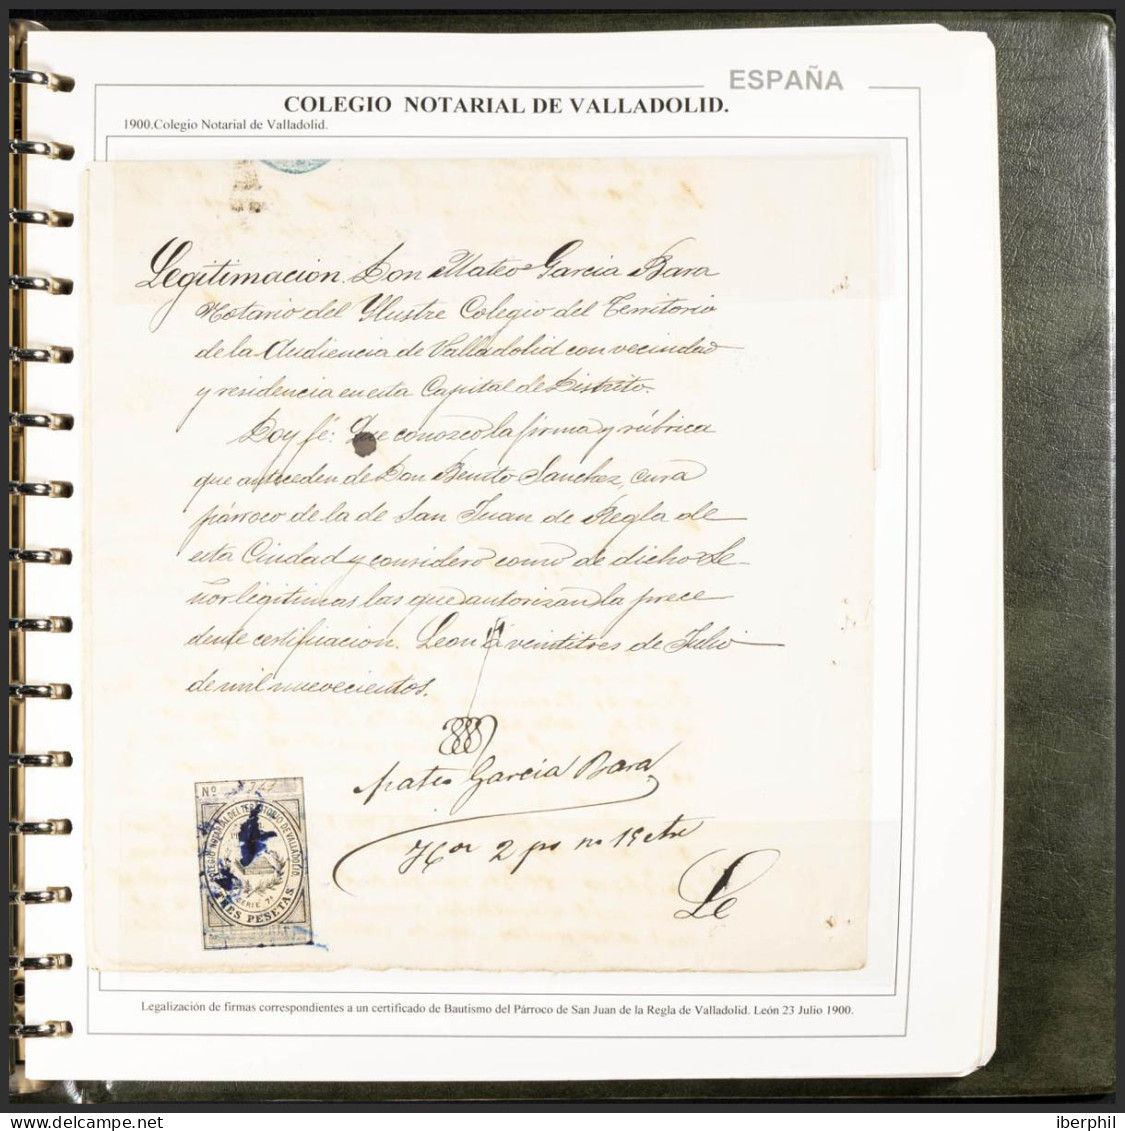 ESPAÑA
COLEGIO NOTARIAL DE VALLADOLID.
1900.Colegio Notarial de Valladolid.
Legitimacion. Don Mateo Garcia Bara
Notario del Ylustre Colegio del Territorio
de la Audiencia de Valladolid con vecindad
y residencia en esta Capital de Distrito.
Doy fé: Que conozco la firma y rúbrica
que anteceden de Don Benito Sanchez, cura
párroco de la de San Juan de Regla de
esta Ciudad y considero como de dicho Se-
ñor legitimas las que autorizan la prece
dente certificacion. Leon á veintitres de Julio
de mil nuevecientos.
Mateo Garcia Bara
Nº
COLEGIO NOTARIAL DEL TERRITORIO DE VALLADOLID.
SERIE 7ª
TRES PESETAS.
2
Le
Legalización de firmas correspondientes a un certificado de Bautismo del Párroco de San Juan de la Regla de Valladolid. León 23 Julio 1900.
iberphil